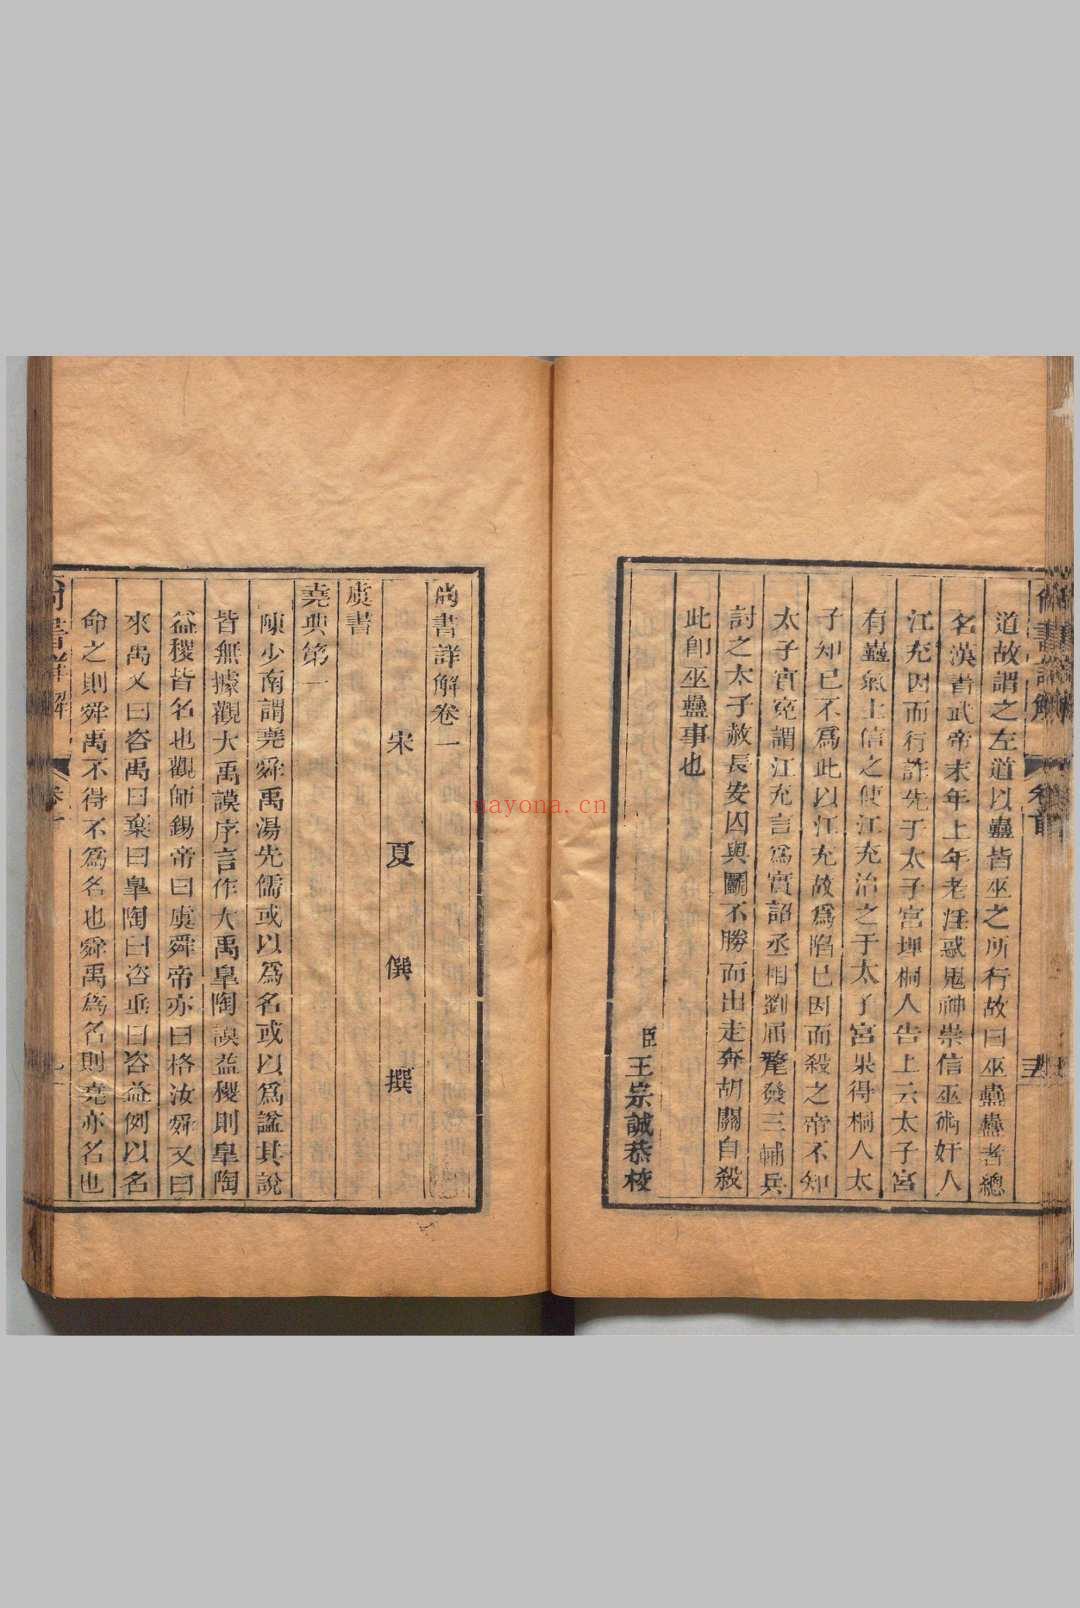 尚書詳解
卷首
道故謂之左道以蠱皆巫之所行故曰巫蠱蠱者總
名漢書武帝末年上年老淫惑鬼神崇信巫術奸人
江充因而行詐先于太子宮埋桐人告上云太子宮
有蠱氣上信之使江充治之于太子宮果得桐人太
子知已不為此以江充故為陷已因而殺之帝不知
太子實冤謂江充言為實詔丞相劉屈氂發三輔兵
討之太子赦長安囚與鬭不勝而出走奔胡關自殺
此卽巫蠱事也
臣王宗誠恭校
尚書詳解卷一
宋 夏 僎 撰
虞書
堯典第一
陳少南謂堯舜禹湯先儒或以為名或以為謚其說
皆無據觀大禹謨序言作大禹皐陶謨益稷則皐陶
益稷皆名也觀師錫帝曰虞舜帝亦曰格汝舜又曰
來禹又曰咨禹曰棄曰皐陶曰咨垂曰咨益例以名
命之則舜禹不得不為名也舜禹為名則堯亦名也
尚書詳解
卷一
nayona.cn